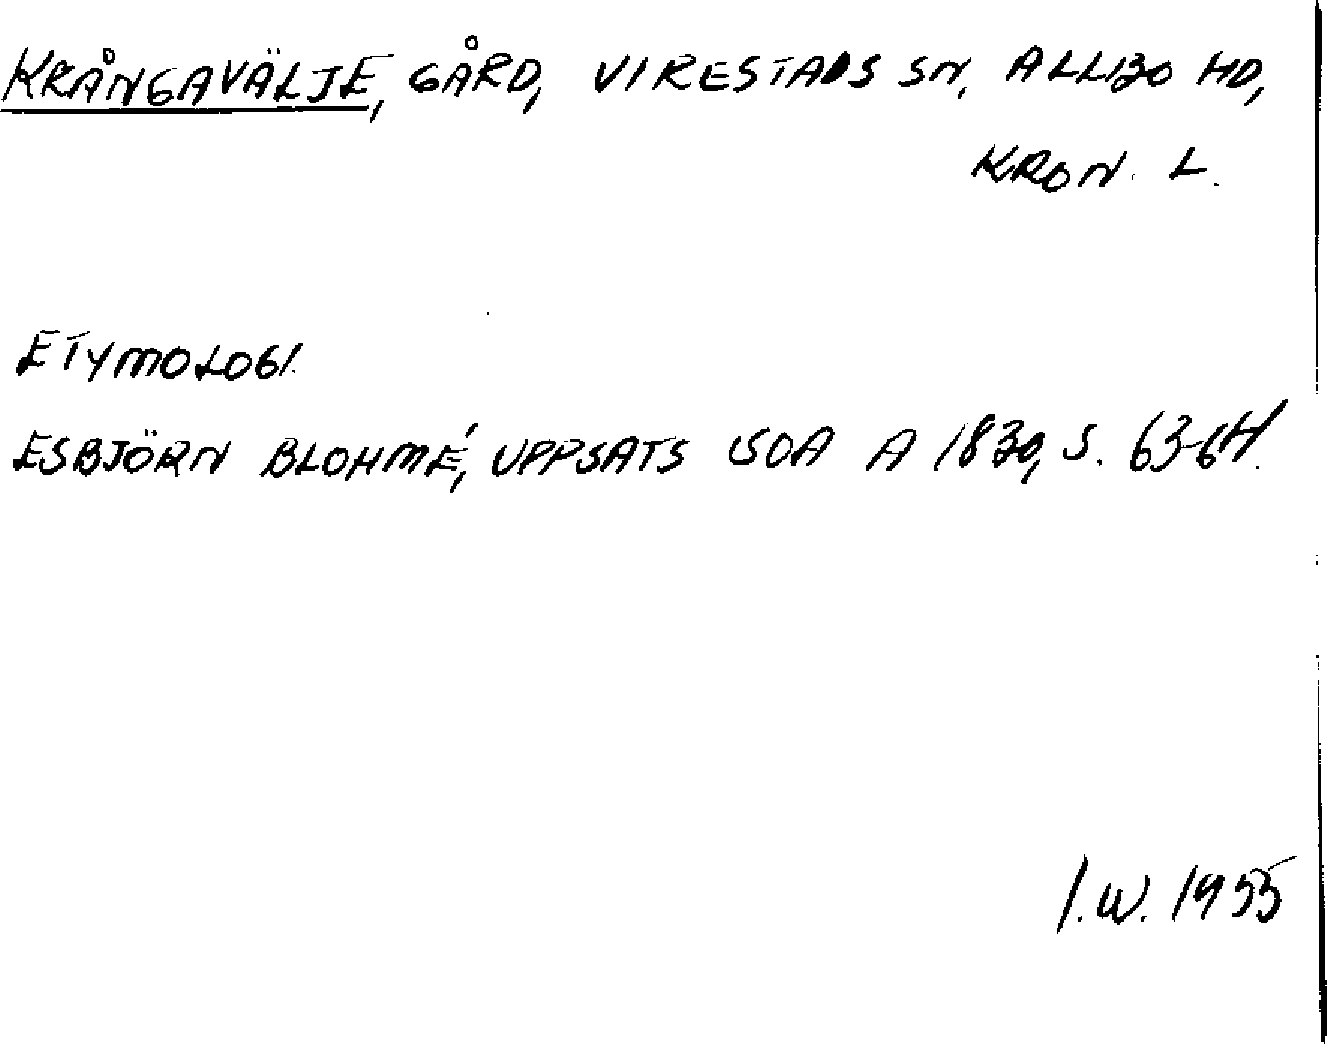 KRÅNGAVÄLJE, GÅRD, VIRESTADS SN, ALLBO HD,
KRON. L.
ETYMOLOGI.
ESBJÖRN BLOHMÉ, UPPSATS I SOA A 1830, S. 63-64.
I.W. 1955